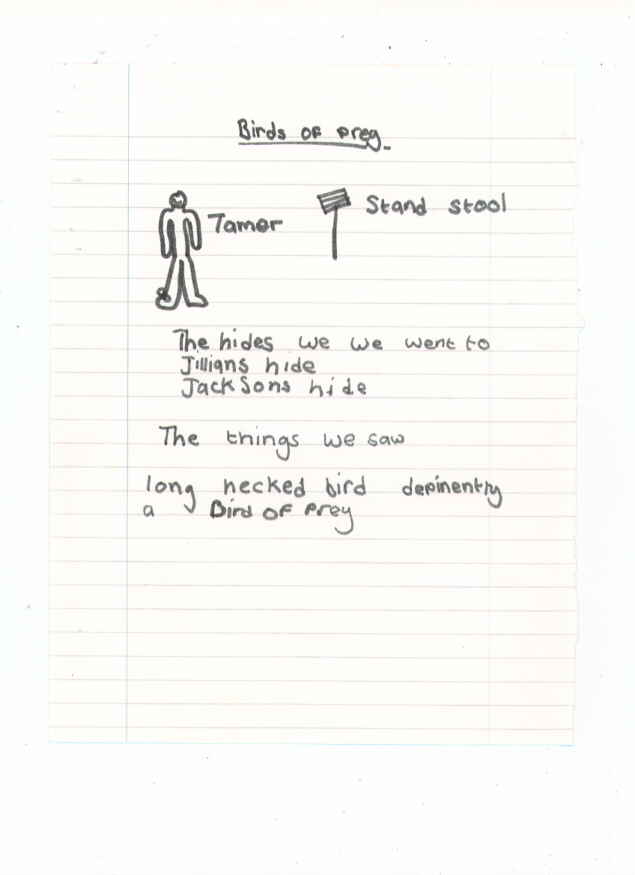 Birds of preg
Tamer
Stand stool
The hides we we went to
Jillians hide
Jacksons hide
The things we saw
long necked bird depinently
a Bird of Prey